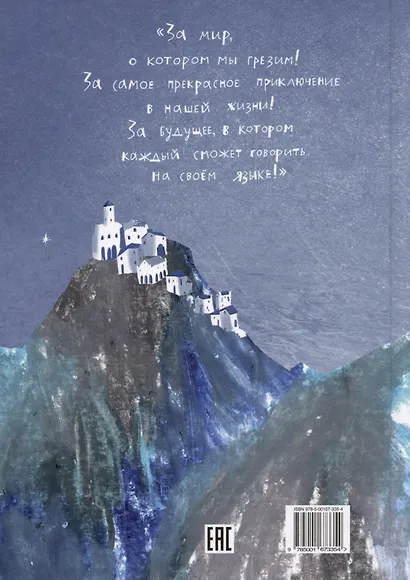 «За мир,
о котором мы грезим!
За самое прекрасное приключение
в нашей жизни!
За будущее, в котором
каждый сможет говорить
на своём языке!»
ISBN 978-5-00167-335-4
EAC
9 785001 673354 >